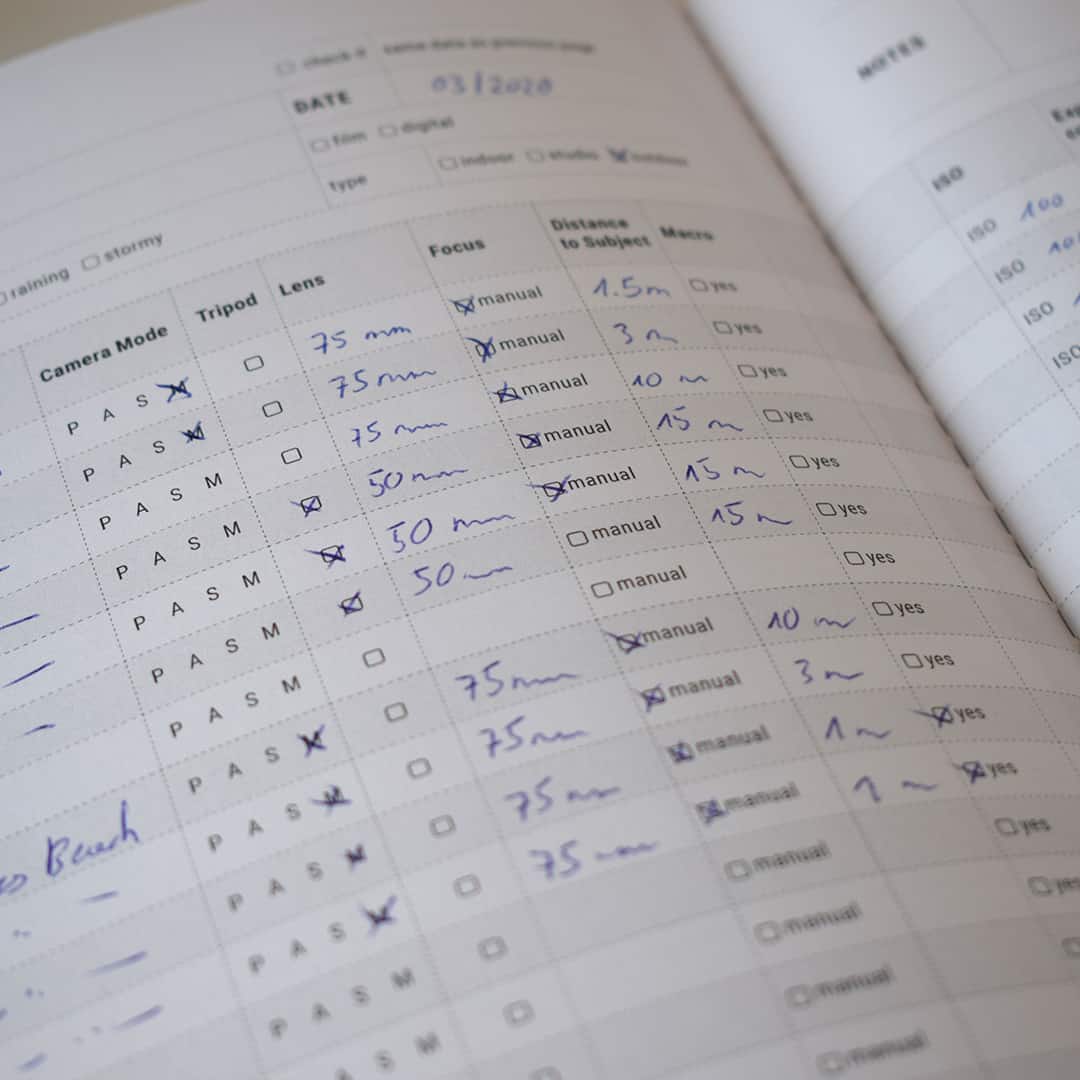 check if same data as previous page
DATE 03/2020
film digital
type indoor studio outdoor
raining stormy
Camera Mode Tripod Lens Focus Distance to Subject Macro
P A S M 75 mm manual 1.5m yes
P A S M 75 mm manual 3 m yes
P A S M 75 mm manual 10 m yes
P A S M 50 mm manual 15 m yes
P A S M 50 mm manual 15 m yes
P A S M 50 mm manual 15 m yes
P A S M manual yes
Beach P A S M 75 mm manual 10 m yes
P A S M 75 mm manual 3 m yes
P A S M 75 mm manual 1 m yes
P A S M 75 mm manual 1 m yes
P A S M manual yes
P A S M manual yes
manual
manual
NOTES
ISO
ISO 100
ISO
ISO
ISO